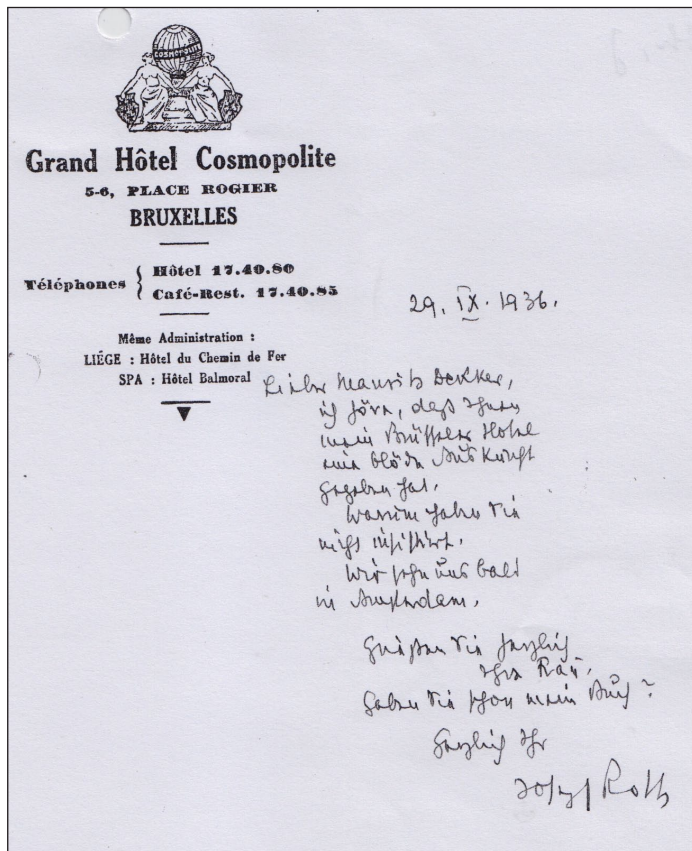 COSMOPOLITE
Grand Hôtel Cosmopolite
5-6, PLACE ROGIER
BRUXELLES
Téléphones { Hôtel 17.40.80
Café-Rest. 17.40.85
Même Administration :
LIÉGE : Hôtel du Chemin de Fer
SPA : Hôtel Balmoral
29. IX. 1936.
Lieber Maurits Dekker,
ich höre, daß Ihnen
mein Brüsseler Hotel
eine blöde Auskunft
gegeben hat.
Warum haben Sie
nicht insistiert.
Wir sehn uns bald
in Amsterdam.
Grüßen Sie herzlich
Ihre Frau.
Haben Sie schon mein Buch?
Herzlich Ihr
Joseph Roth